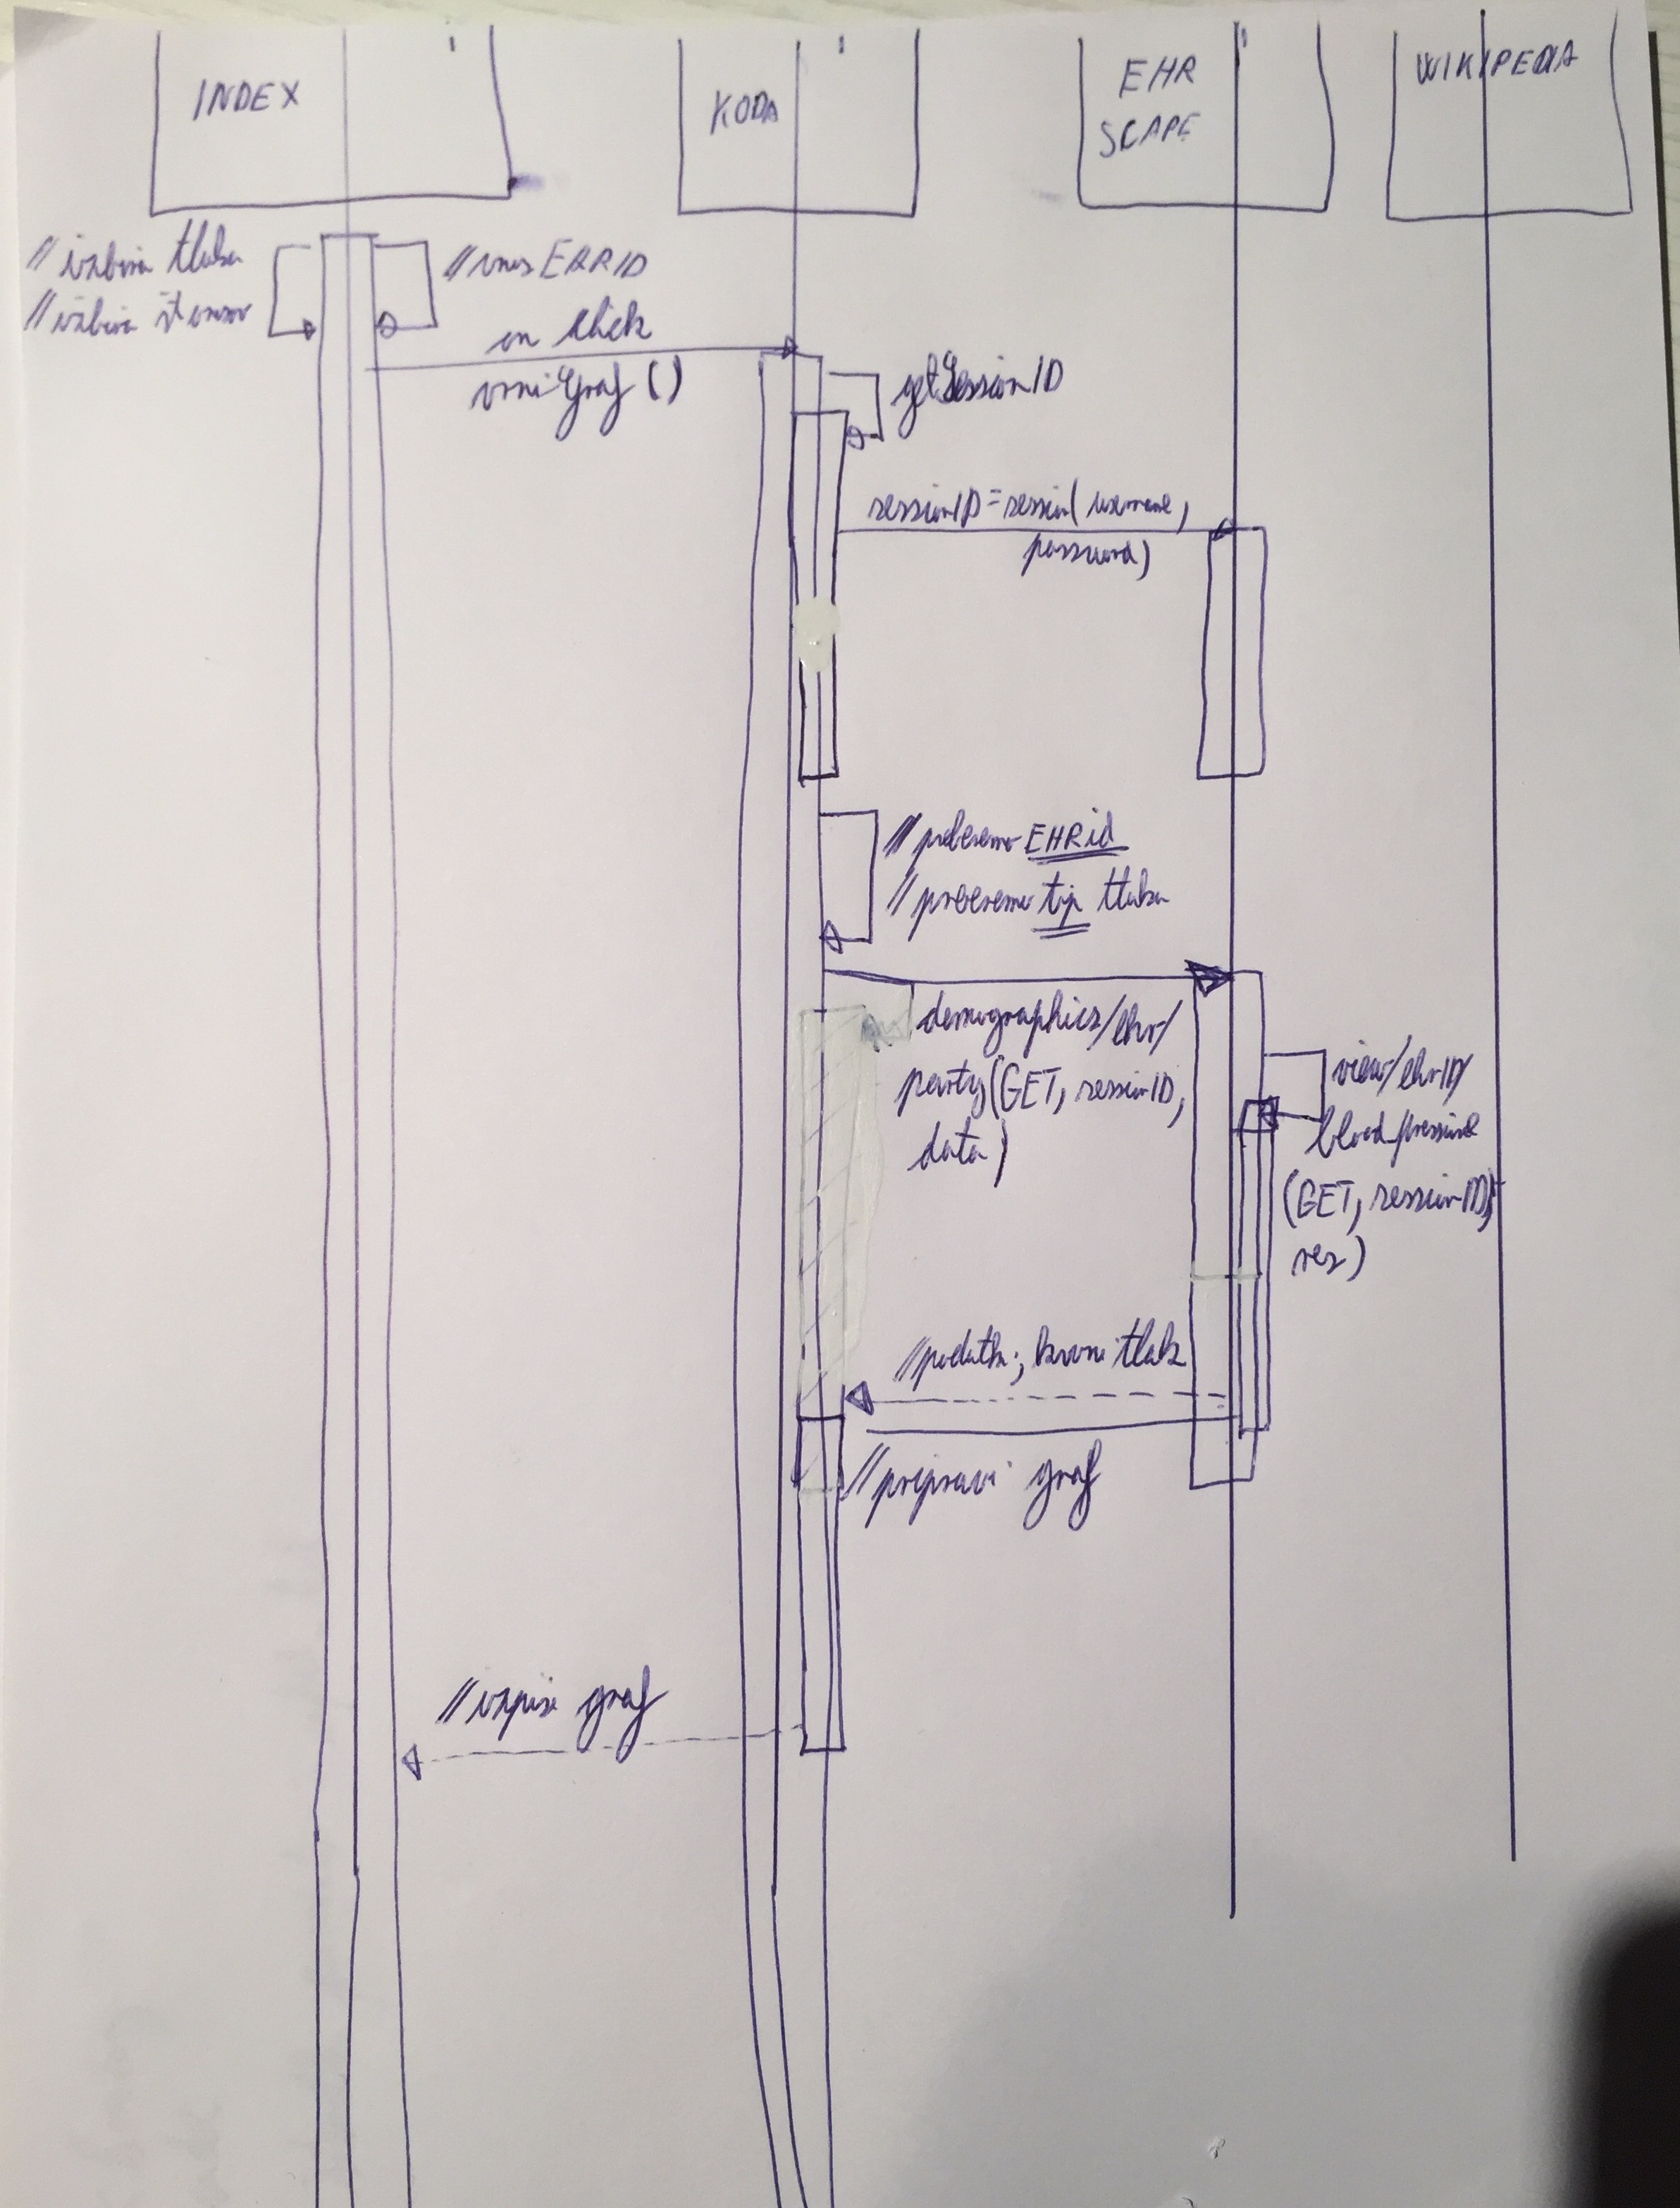 INDEX
KODA
EHR
SCAPE
WIKIPEDIA
// izbira tlaka
// izbira
// vnos EHRID
on click
vrniGraf ()
getSessionID
sessionID = session( username,
password)
// preberemo EHRid
// preberemo tip tlaka
demographics/ehr/
party(GET, sessionID,
data)
view/ehrID/
blood_pressure
(GET, sessionID,
res)
// podatki, krvni tlak
// pripravi graf
// izpisi graf